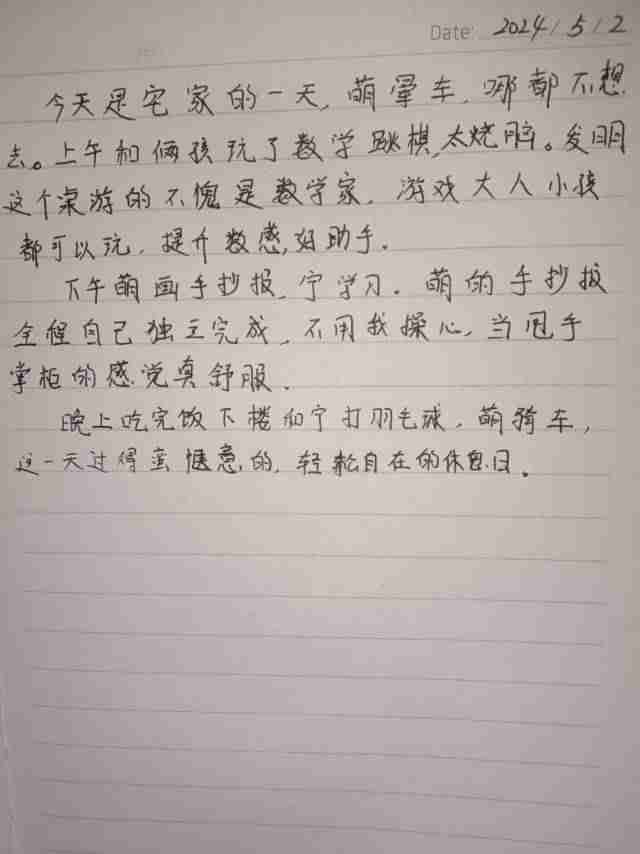 Date: 2024/5/2
今天是宅家的一天,萌晕车,哪都不想
去。上午和俩孩玩了数学跳棋,太烧脑。发明
这个桌游的不愧是数学家,游戏大人小孩
都可以玩,提升数感,好助手。
下午萌画手抄报,宁学习。萌的手抄报
全程自己独立完成,不用我操心,当甩手
掌柜的感觉真舒服。
晚上吃完饭下楼和宁打羽毛球,萌骑车,
这一天过得蛮惬意的,轻松自在的休息日。